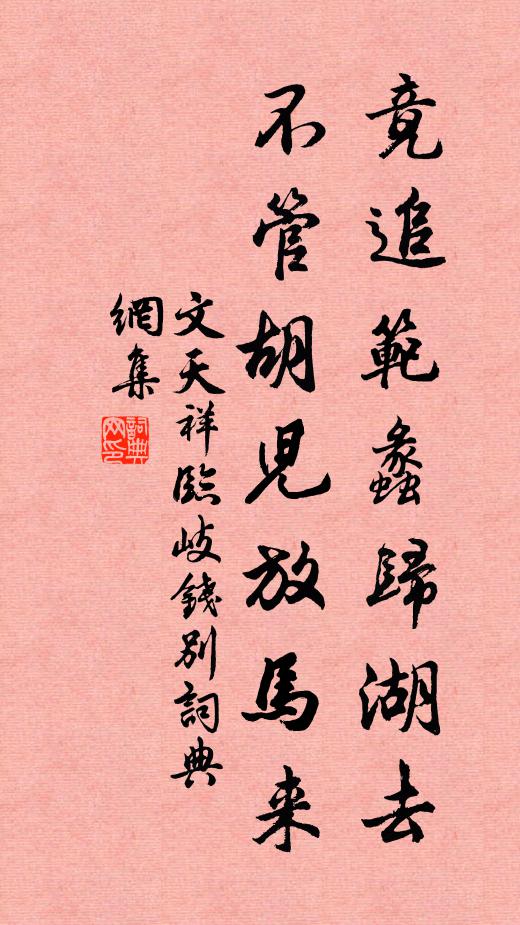 竟追範蠡歸湖去
不管胡児放馬来
文天祥臨岐錢别詞典
網集
詞典
网印